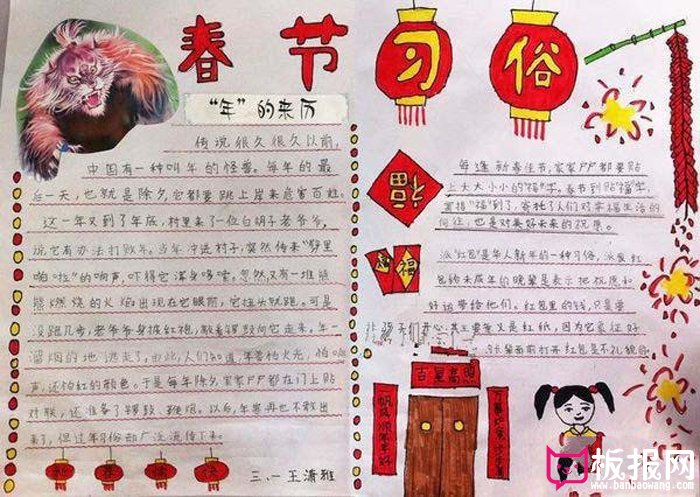 春节习俗
“年”的来历
传说,很久很久以前,
中国有一种叫年的怪兽。每年的最
后一天,也就是除夕,它都要跳上岸来危害百姓。
这一年又到了年底,村里来了一位白胡子老爷爷,
说它有办法打败年。当年冲进村子,突然传来“噼里
啪啦”的响声,吓得它浑身哆嗦。忽然,又有一堆熊
熊燃烧的火焰出现在它眼前,它扭头就跑。可是
没跑几步,老爷爷身披红袍,敲着锣鼓向它走来,年一
溜烟的地逃走了。由此,人们知道,年害怕火光,怕响
声,还怕红的颜色。于是每年除夕,家家户户都在门上贴
对联,还准备了锣鼓、鞭炮。以后,年兽再也不敢出
来了,但过年习俗动广泛流传下来。
三.一 王潇雅
每逢新春佳节,家家户户都要贴
上大大小小的“福”字。春节到贴“福”字,
意指“福”到了,寄托了人们对幸福生活的
向往,也是对美好未来的祝愿。
福
派“红包”是华人新年的一种习俗,派发红
包给未成年的晚辈是表示把祝愿和
好运带给他们。红包里的钱,只是要
开心,其主要意义是红纸,因为它象征好
福
吉星高照
板报网
www.banbaowang.com